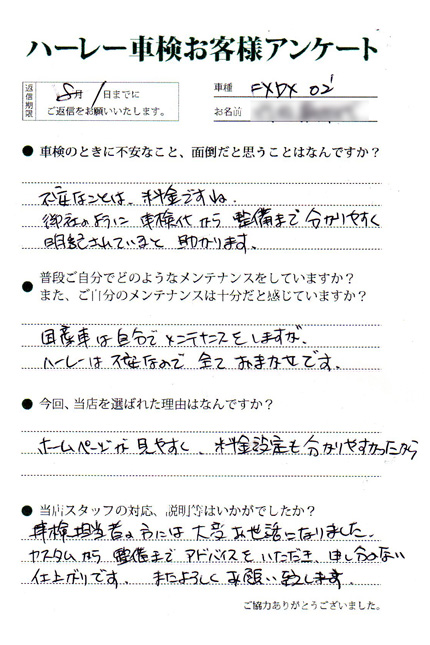 ハーレー車検お客様アンケート
返信期限 8月1日までに
ご返信をお願いいたします。
車種 FXDX 02'
お名前
● 車検のときに不安なこと、面倒だと思うことはなんですか？
不安なことは、料金ですね。
御社のように 車検代から 整備まで 分かりやすく
明記されていると 助かります。
● 普段ご自分でどのようなメンテナンスをしていますか？
また、ご自分のメンテナンスは十分だと感じていますか？
国産車は自分でメンテナンスをしますが、
ハーレーは不安なので 全て おまかせです。
● 今回、当店を選ばれた理由はなんですか？
ホームページが 見やすく、料金設定も分かりやすかったから
● 当店スタッフの対応、説明等はいかがでしたか？
車検担当者の方には 大変お世話になりました。
カスタムから 整備まで アドバイスをいただき、申し分のない
仕上がりです。 またよろしくお願い致します。
ご協力ありがとうございました。